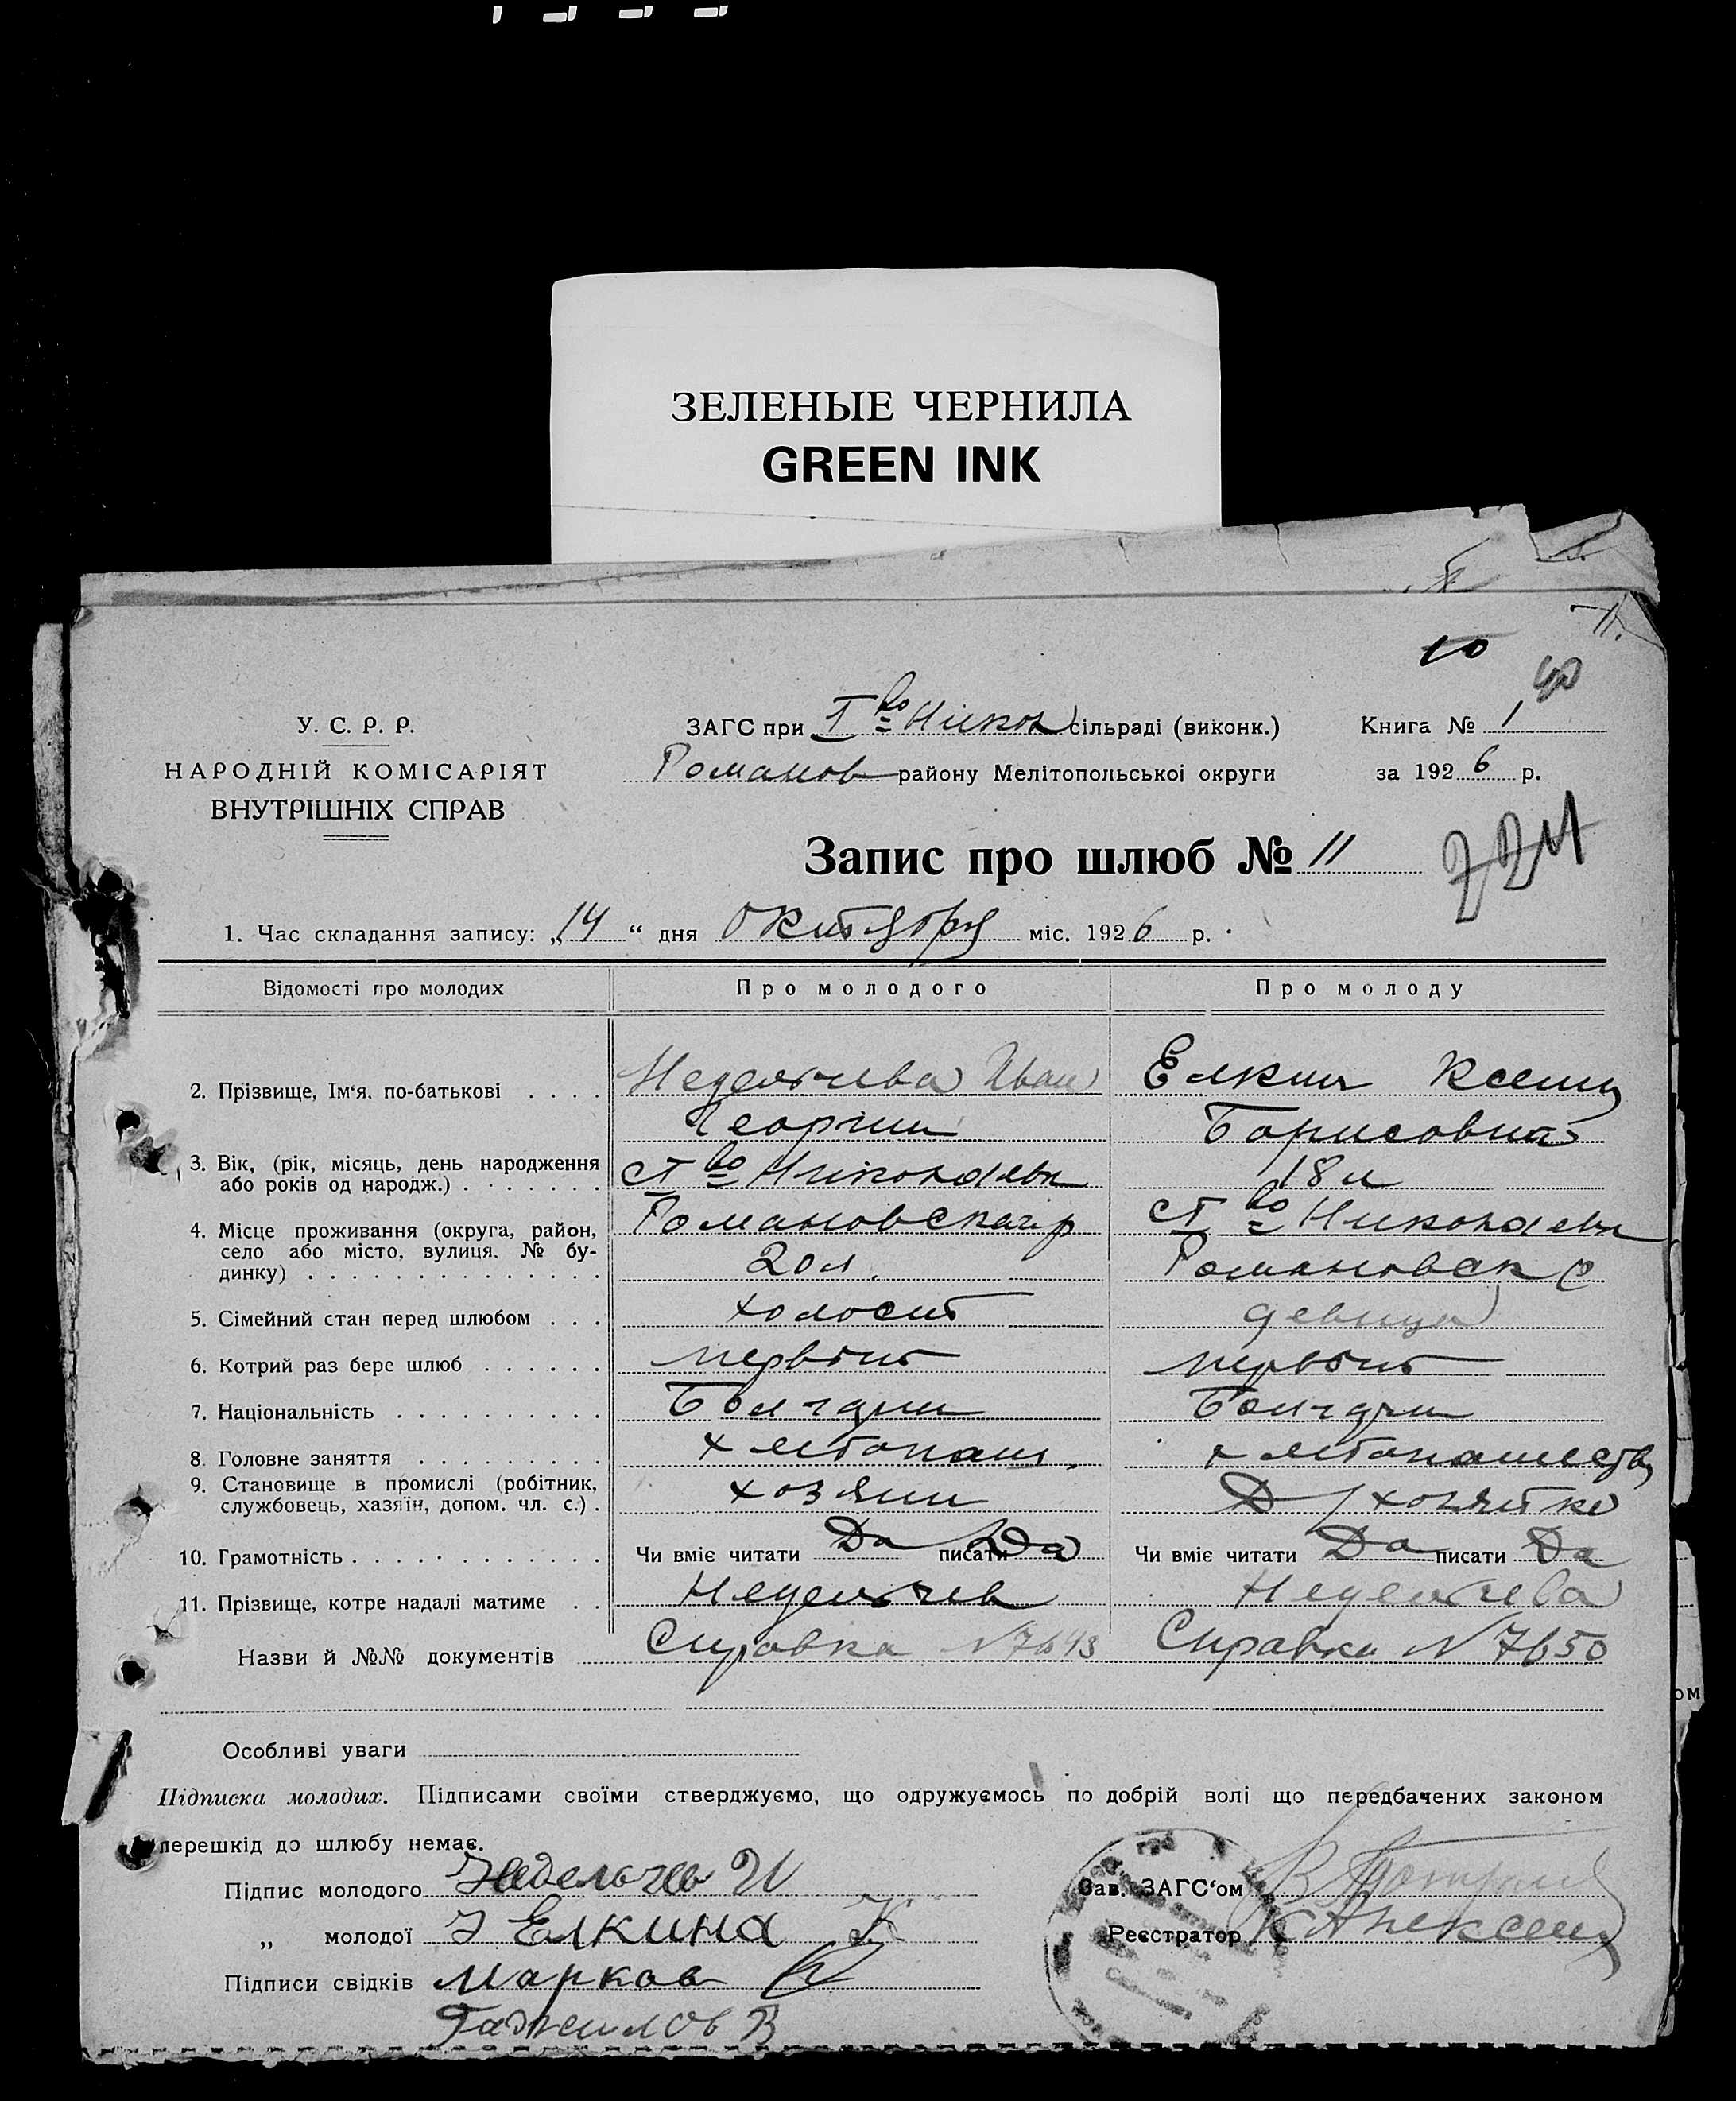 ЗЕЛЕНЫЕ ЧЕРНИЛА
GREEN INK
10
У. С. Р. Р.
НАРОДНІЙ КОМІСАРІЯТ
ВНУТРІШНІХ СПРАВ
ЗАГС при Т во Никол сільраді (виконк.)
Романов району Мелітопольської округи
Книга № 1
за 1926 р.
Запис про шлюб № 11
1. Час складання запису: „14“ дня октября міс. 1926 р.
Відомості про молодих Про молодого Про молоду
2. Прізвище, Ім‘я. по-батькові Неделчева Иван Елкин Ксения
Георгии Борисовна
3. Вік, (рік, місяць, день народження або років од народж.) с Т во Николаевк 18 л
4. Місце проживання (округа, район, село або місто, вулиця. № будинку) Романовскаг р с Т во Николаевк
20 л. Романовск р
5. Сімейний стан перед шлюбом холост девица
6. Котрий раз бере шлюб первый первый
7. Національність Болгарин Болгарин
8. Головне заняття хлебопаш. хлебопашеств
9. Становище в промислі (робітник, службовець, хазяїн, допом. чл. с.) хозяин Д/хозяйка
10. Грамотність Чи вміє читати Да писати Да Чи вміє читати Да писати Да
11. Прізвище, котре надалі матиме Неделчев Неделчева
Назви й №№ документів Справка N 7643 Справка N 7650
Особливі уваги
Підписка молодих. Підписами своїми стверджуємо, що одружуємось по добрій волі що передбачених законом
перешкід до шлюбу немає.
Підпис молодого Недельчев И
„ молодої Елкина К
Підписи свідків Марков
Гаджилов В
Зав. ЗАГС‘ом
Реєстратор К Алексеи